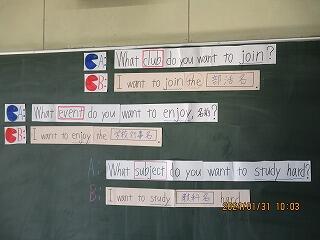 A: What club do you want to join?
B: I want to join the 部活名.
A: What event do you want to enjoy, 名前?
B: I want to enjoy the 学校行事名.
A: What subject do you want to study hard?
B: I want to study 教科名 hard.
2021/01/31 10:03